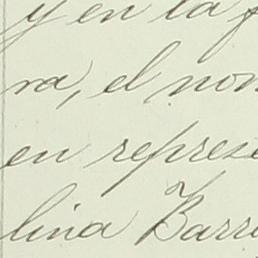 y en la f
ra, el non
en represe
lina Barr